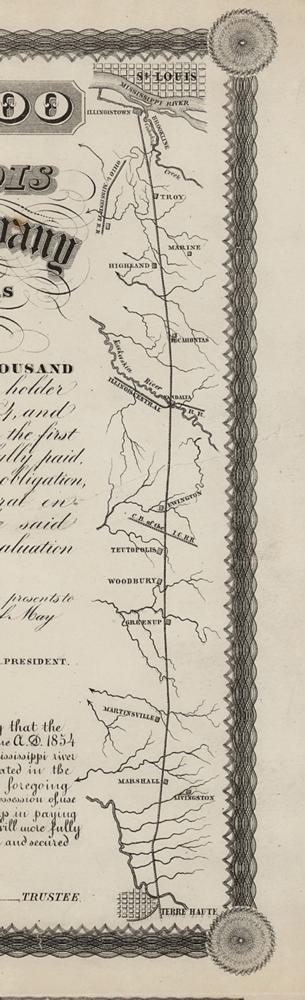 00
OIS
pany
S
OUSAND
holder
4, and
the first
ully paid,
obligation,
ral en-
said
aluation
presents to
May
PRESIDENT.
g that the
ne A.D. 1854
ississippi river
ated in the
foregoing
ossession of, use
ys in paying
will more fully
and secured
TRUSTEE
ST LOUIS
MISSISSIPPI RIVER
ILLINOISTOWN
BROOKLINE
Creek
TROY
MARINE
HIGHLAND
POCAHONTAS
Kaskaskia River
ILLINOIS CENTRAL
VANDALIA
R. R.
EWINGTON
C. B. of the I. C. R.R.
TEUTOPOLIS
WOODBURY
GREENUP
MARTINSVILLE
MARSHALL
LIVINGSTON
TERRE HAUTE